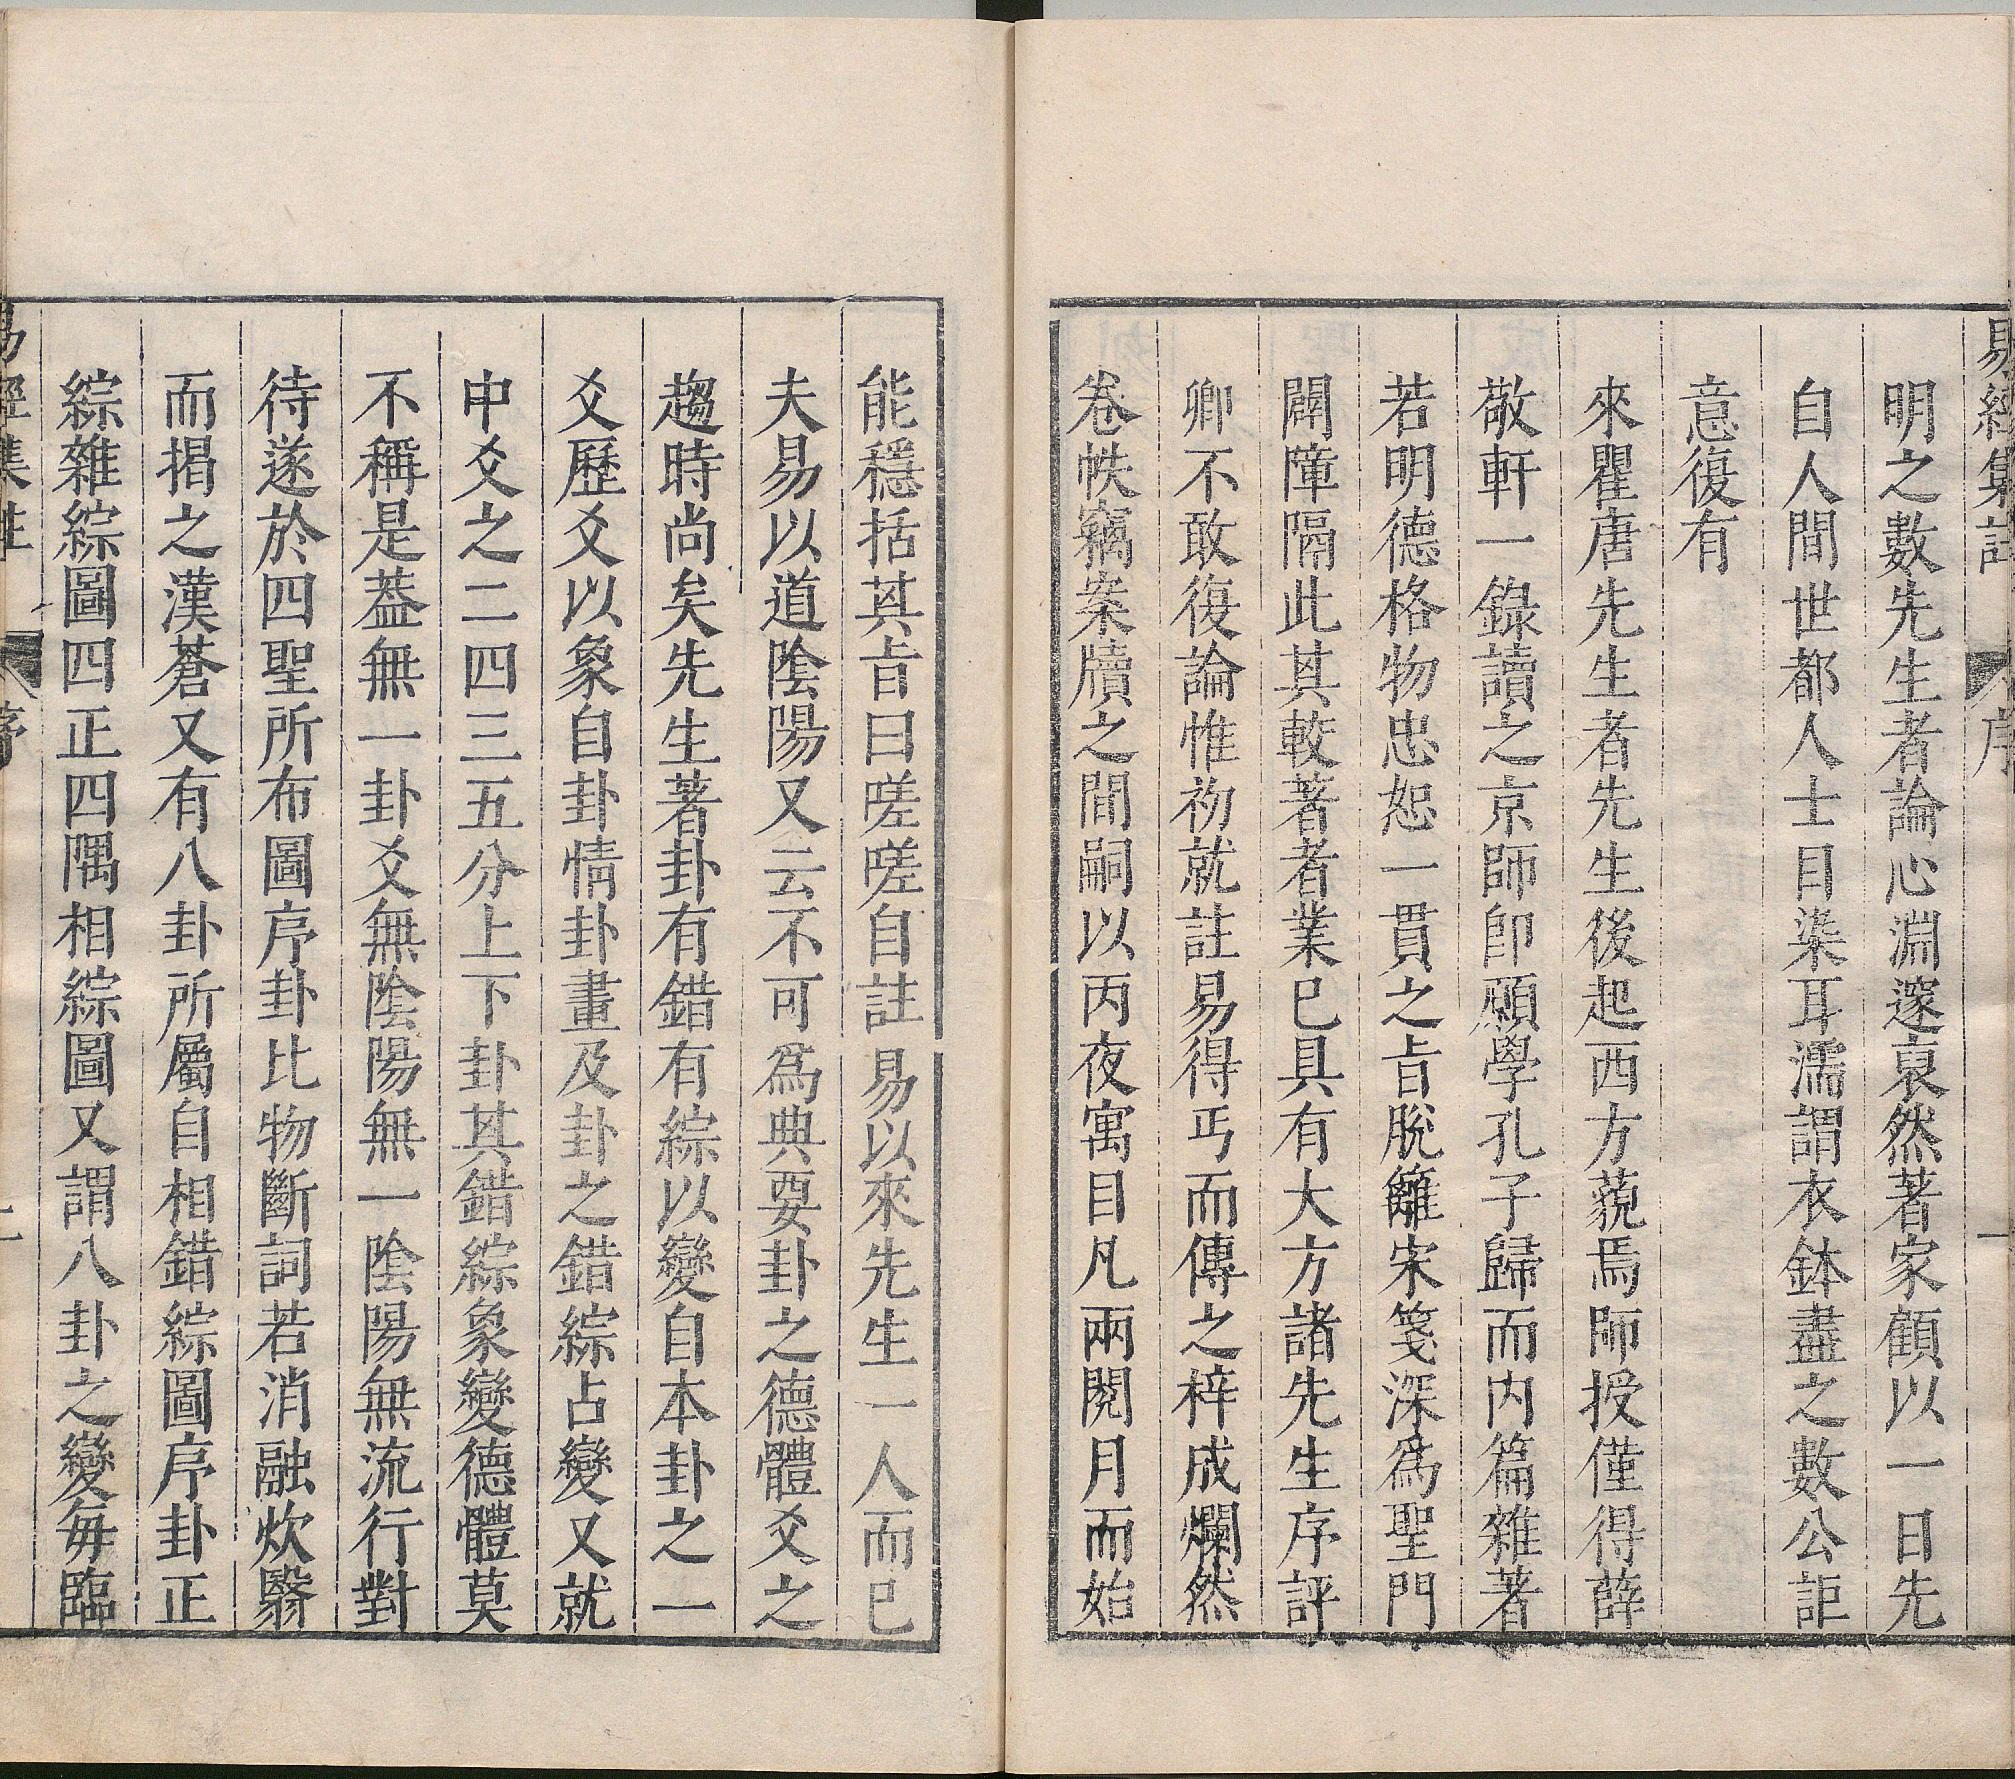 易經集註
序
一
明之數先生者論心淵邃裒然著家顧以一日先
自人間世都人士目染耳濡謂衣鉢盡之數公詎
意復有
來瞿唐先生者先生後起西方藐焉師授僅得薛
敬軒一錄讀之京師卽願學孔子歸而内篇雜著
若明德格物忠恕一貫之旨脫籬宋箋深爲聖門
闢障隔此其較著者業已具有大方諸先生序評
卿不敢復論惟初就註易得丐而傳之梓成爛然
卷帙竊案牘之間嗣以丙夜寓目凡兩閱月而始
能穩括其旨曰嗟嗟自註易以來先生一人而已
夫易以道陰陽又云不可爲典要卦之德體爻之
趨時尚矣先生著卦有錯有綜以變自本卦之一
爻歷爻以象自卦情卦畫及卦之錯綜占變又就
中爻之二四三五分上下卦其錯綜象變德體莫
不稱是葢無一卦爻無陰陽無一陰陽無流行對
待遂於四聖所布圖序卦比物斷詞若消融炊翳
而揭之漢蒼又有八卦所屬自相錯綜圖序卦正
綜雜綜圖四正四隅相綜圖又謂八卦之變毎臨
易經集註
序